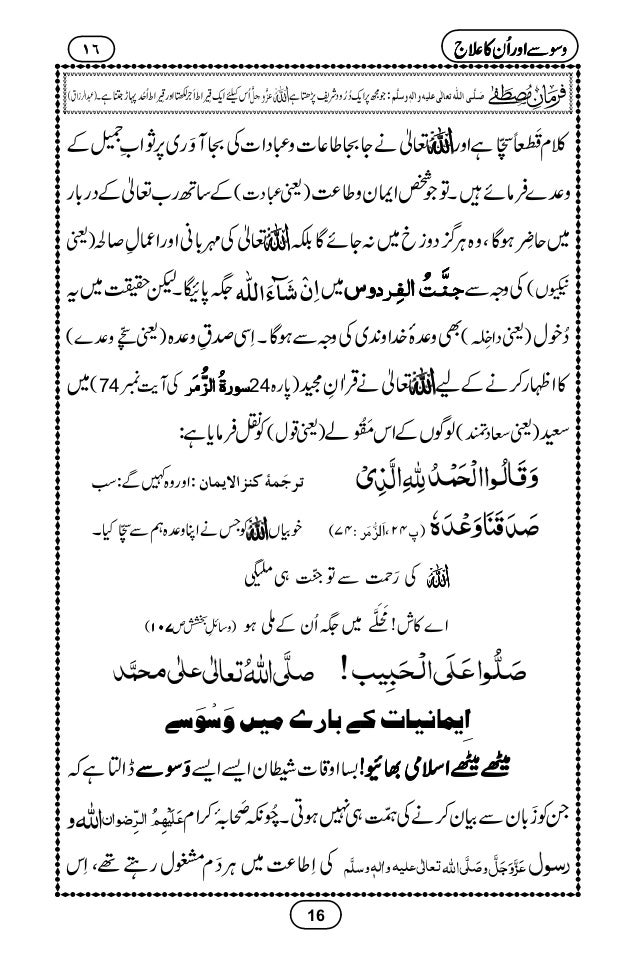 وسوسے اور اُن کا علاج
١٦
فرمانِ مُصطَفٰے صلَّی اللہ تعالٰی علیہ والہٖ وسلَّم : جو مجھ پر ایک دُرُود شریف پڑھتا ہے اللہ عَزَّوَجَلَّ اُس کیلئے ایک قیراط اَجر لکھتا اور قیراط اُحُد پہاڑ جتنا ہے۔ (عبدالرزاق)
کلام قَطعاً سچّا ہے اور اللہ تعالٰی نے جا بجا طاعات و عبادات کی بجا آوَری پر ثوابِ جمیل کے
وعدے فرمائے ہیں۔ تو جو شخص ایمان و طاعت (یعنی عبادت) کے ساتھ رب تعالٰی کے دربار
میں حاضِر ہوگا، وہ ہرگز دوزخ میں نہ جائے گا بلکہ اللہ تعالٰی کی مہربانی اور اعمالِ صالحہ (یعنی
نیکیوں) کی وجہ سے جنّتُ الفِردوس میں اِنْ شَآءَ اللہ جگہ پائیگا۔ لیکن حقیقت میں یہ
دُخول (یعنی داخِلہ) بھی وعدۂ خداوندی کی وجہ سے ہوگا۔ اِسی صدقِ وعدہ (یعنی سچّے وعدے)
کا اظہار کرنے کے لیے اللہ تعالٰی نے قراٰنِ مجید (پارہ 24 سورۃُ الزُّمَر کی آیت نمبر 74) میں
سعید (یعنی سعادتمند) لوگوں کے اس مَقُولے (یعنی قول) کو نقل فرمایا ہے:
وَقَالُوا الْحَمْدُ لِلّٰهِ الَّذِیْ
ترجَمۂ کنز الایمان : اور وہ کہیں گے : سب
صَدَقَنَا وَعْدَهٗ (پ ٢٤، اَلزُّمَر : ٧٤)
خوبیاں اللہ کو جس نے اپنا وعدہ ہم سے سچّا کیا۔
اللہ کی رَحمت سے تو جنّت ہی ملیگی
اے کاش! مَحَلّے میں جگہ اُن کے ملی ہو (وسائلِ بخشش ص ١٠٧)
صَلُّوا عَلَی الْحَبِیب ! صلَّی اللہُ تعالٰی علٰی محمَّد
اِیمانیات کے بارے میں وَسْوَسے
میٹھے میٹھے اسلامی بھائیو! بسا اوقات شیطان ایسے ایسے وَسوسے ڈالتا ہے کہ
جن کو زَبان سے بیان کرنے کی ہمّت ہی نہیں ہوتی۔ چُونکہ صَحابۂ کرام عَلَیْہِمُ الرِّضوان اللہ و
رسول عَزَّوَجَلَّ وصلَّی اللہ تعالٰی علیہ واٰلہٖ وسلَّم کی اِطاعت میں ہر دَم مشغول رہتے تھے، اِس
16